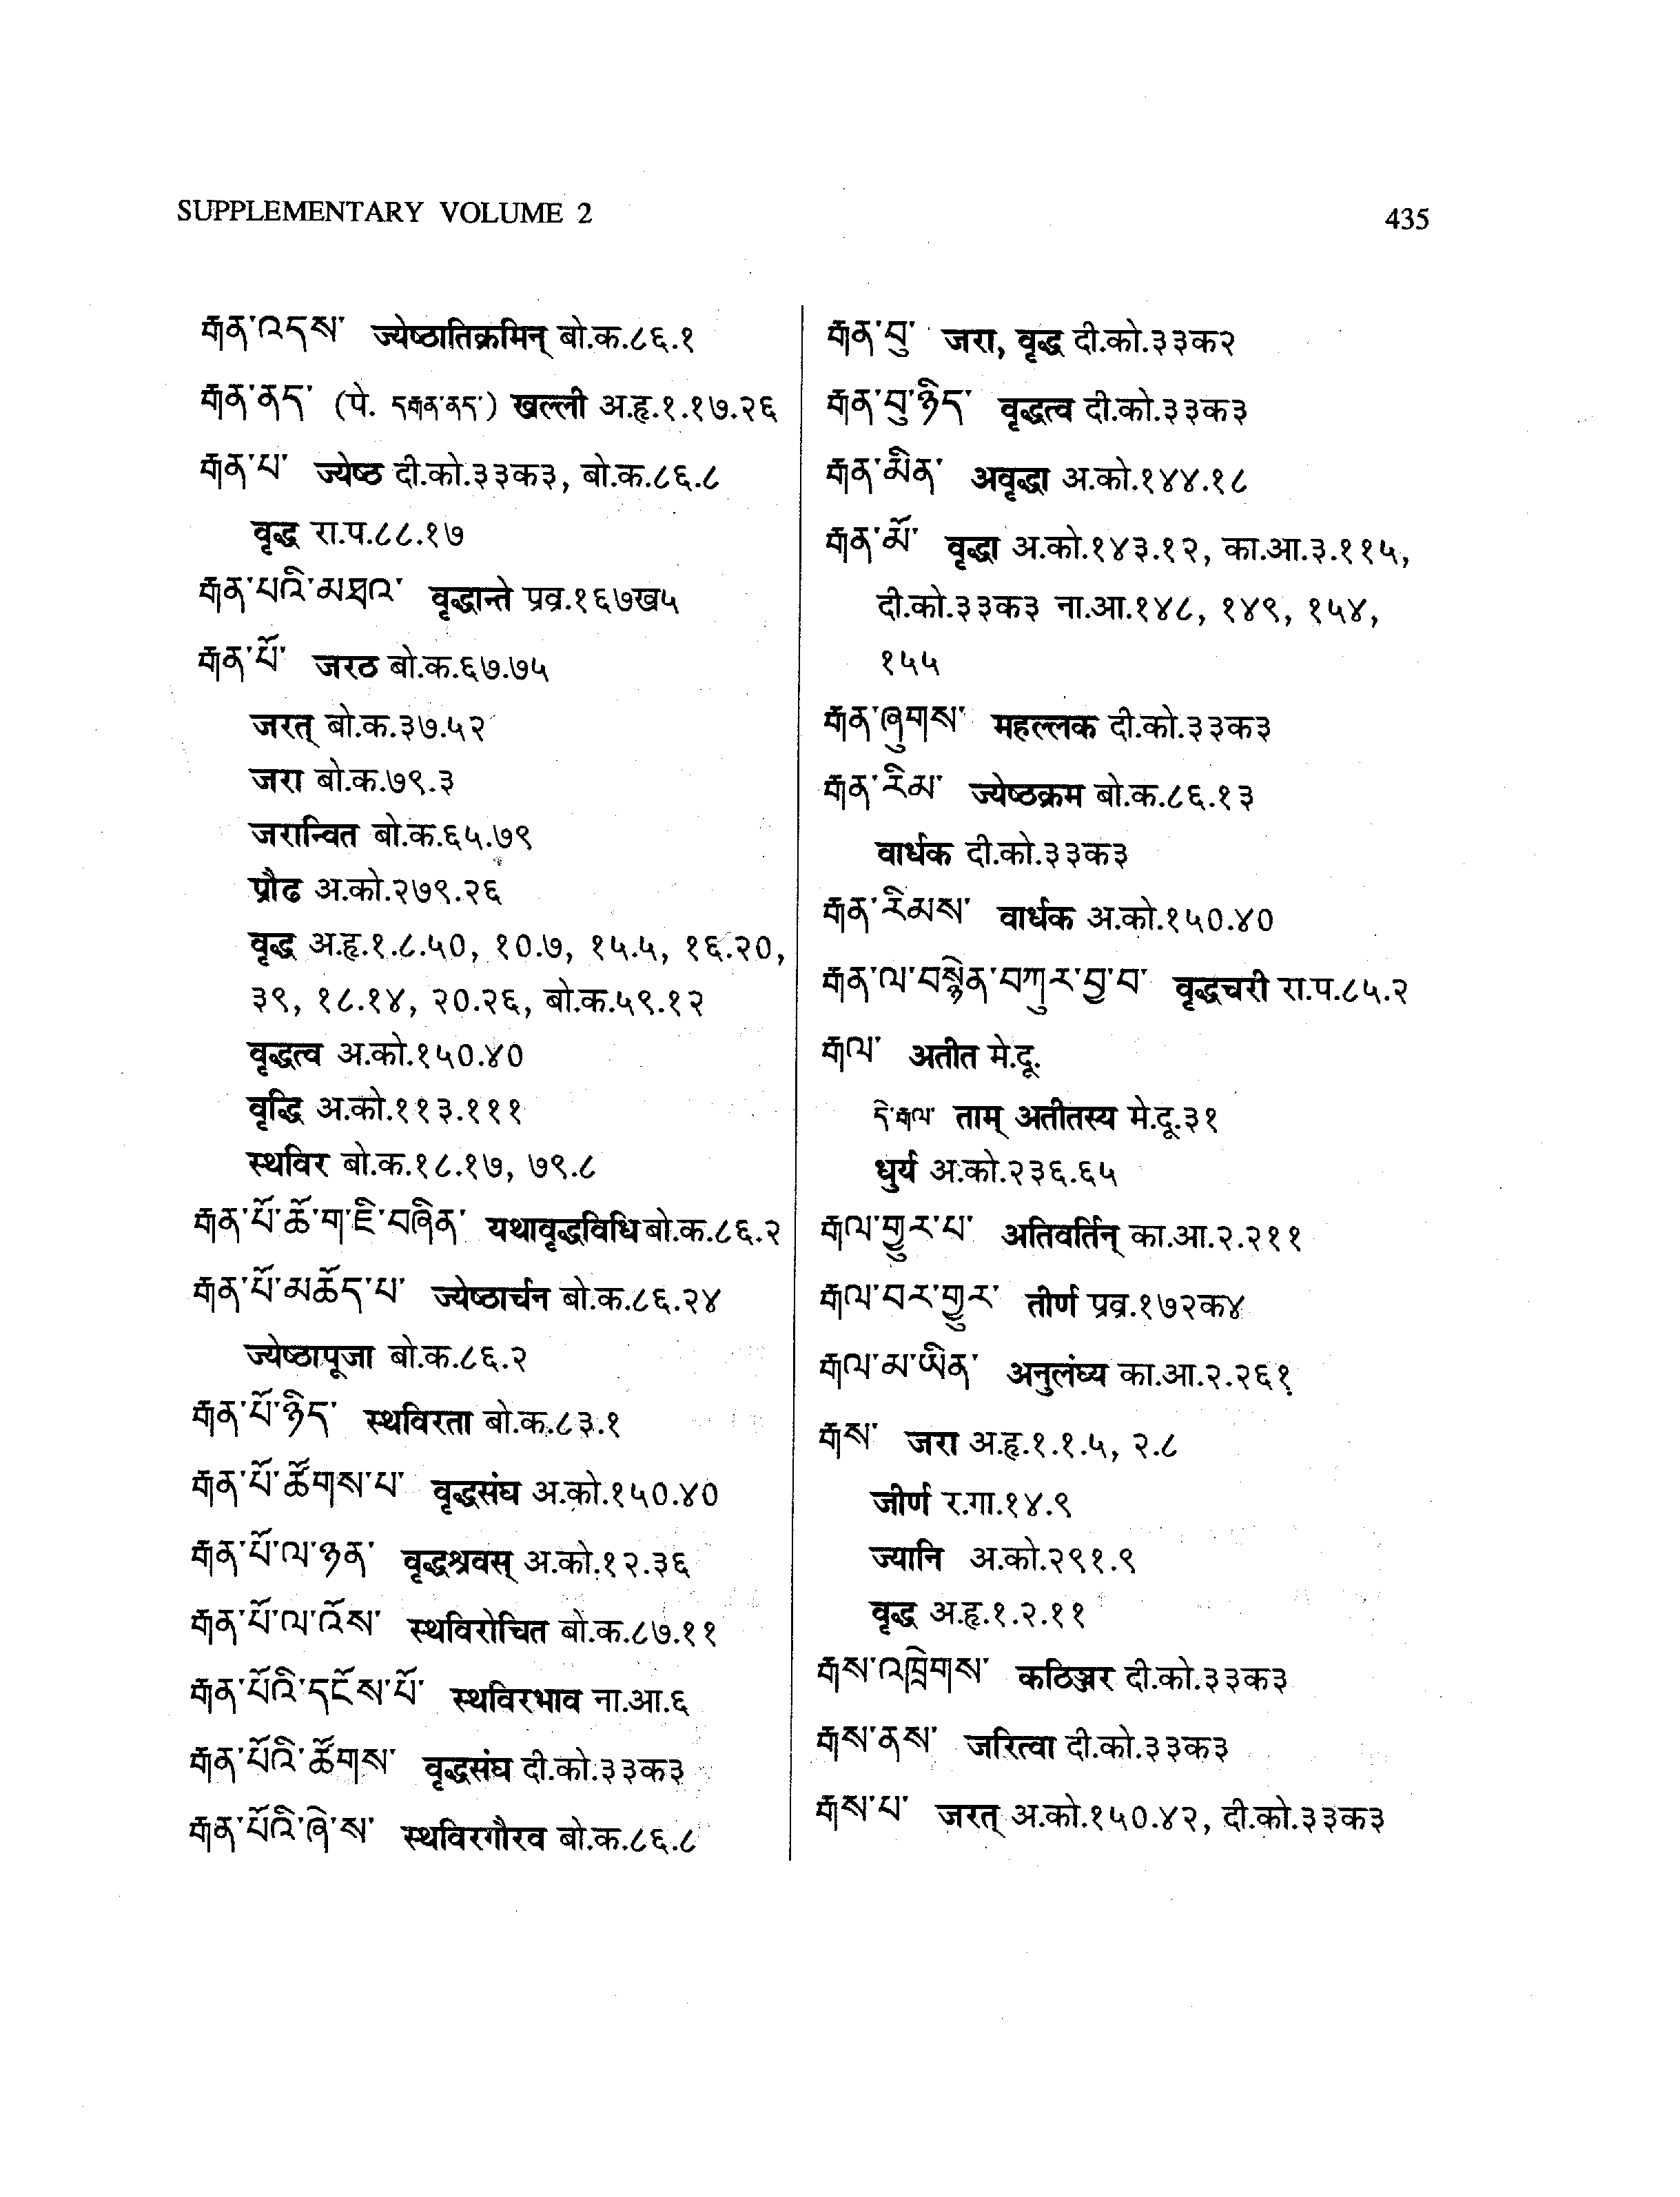 SUPPLEMENTARY VOLUME 2
435
རྒན་འདས་ ज्येष्ठातिक्रमिन् बो.क.८६.१
རྒན་ནད་ (पे. དརྒན་ནད་) खल्ली अ.हृ.१.१७.२६
རྒན་པ་ ज्येष्ठ दी.को.३३क३, बो.क.८६.८
वृद्ध रा.प.८८.१७
རྒན་པའི་མཐའ་ वृद्धान्ते प्रव्र.१६७ख५
རྒན་པོ་ जरठ बो.क.६७.७५
जरत् बो.क.३७.५२
जरा बो.क.७९.३
जरान्वित बो.क.६५.७९
प्रौढ अ.को.२७९.२६
वृद्ध अ.हृ.१.८.५०, १०.७, १५.५, १६.२०,
३९, १८.१४, २०.२६, बो.क.५९.१२
वृद्धत्व अ.को.१५०.४०
वृद्धि अ.को.११३.१११
स्थविर बो.क.१८.१७, ७९.८
རྒན་པོ་ཆོ་ག་ཇི་བཞིན་ यथावृद्धविधि बो.क.८६.२
རྒན་པོ་མཆོད་པ་ ज्येष्ठार्चन बो.क.८६.२४
ज्येष्ठापूजा बो.क.८६.२
རྒན་པོ་ཉིད་ स्थविरता बो.क.८३.१
རྒན་པོ་ཚོགས་པ་ वृद्धसंघ अ.को.१५०.४०
རྒན་པོ་ལ་ཉན་ वृद्धश्रवस् अ.को.१२.३६
རྒན་པོ་ལ་འོས་ स्थविरोचित बो.क.८७.११
རྒན་པོའི་དངོས་པོ་ स्थविरभाव ना.आ.६
རྒན་པོའི་ཚོགས་ वृद्धसंघ दी.को.३३क३
རྒན་པོའི་ཞེ་ས་ स्थविरगौरव बो.क.८६.८
རྒན་བུ་ जरा, वृद्ध दी.को.३३क२
རྒན་བུ་ཉིད་ वृद्धत्व दी.को.३३क३
རྒན་མིན་ अवृद्धा अ.को.१४४.१८
རྒན་མོ་ वृद्धा अ.को.१४३.१२, का.आ.३.११५,
दी.को.३३क३ ना.आ.१४८, १४९, १५४,
१५५
རྒན་ཞུགས་ महल्लक दी.को.३३क३
རྒན་རིམ་ ज्येष्ठक्रम बो.क.८६.१३
वार्धक दी.को.३३क३
རྒན་རིམས་ वार्धक अ.को.१५०.४०
རྒན་ལ་བསྙེན་བཀུར་བྱ་བ་ वृद्धचरी रा.प.८५.२
རྒལ་ अतीत मे.दू.
དེ་རྒལ་ ताम् अतीतस्य मे.दू.३१
धुर्य अ.को.२३६.६५
རྒལ་གྱུར་པ་ अतिवर्तिन् का.आ.२.२११
རྒལ་བར་གྱུར་ तीर्ण प्रव्र.१७२क४
རྒལ་མ་ཡིན་ अनुलंघ्य का.आ.२.२६१
རྒས་ जरा अ.हृ.१.१.५, २.८
जीर्ण र.गा.१४.९
ज्यानि अ.को.२९१.९
वृद्ध अ.हृ.१.२.११
རྒས་འཁྲེགས་ कठिञ्जर दी.को.३३क३
རྒས་ནས་ जरित्वा दी.को.३३क३
རྒས་པ་ जरत् अ.को.१५०.४२, दी.को.३३क३